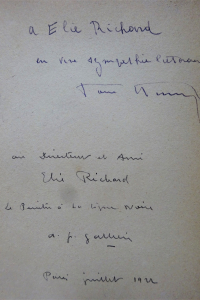 a Elie Richard
en vive sympathie littéraire
au Directeur et Ami
Elie Richard
le Peintre à la ligne noire
a. g.
Paris juillet 1922